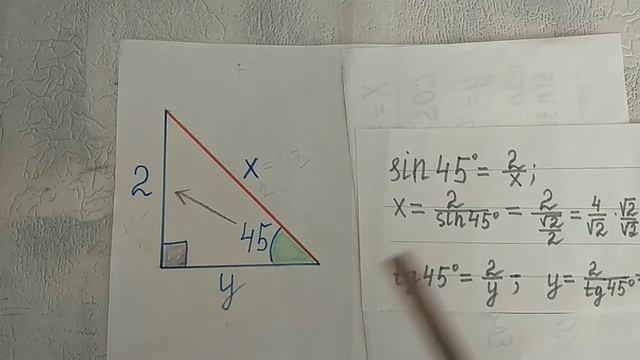 2
x
45
y
sin 45° = 2/x ;
x = 2/sin45° = 2/(√2/2) = 4/√2 · √2/√2
tg 45° = 2/y ; y = 2/tg45° =